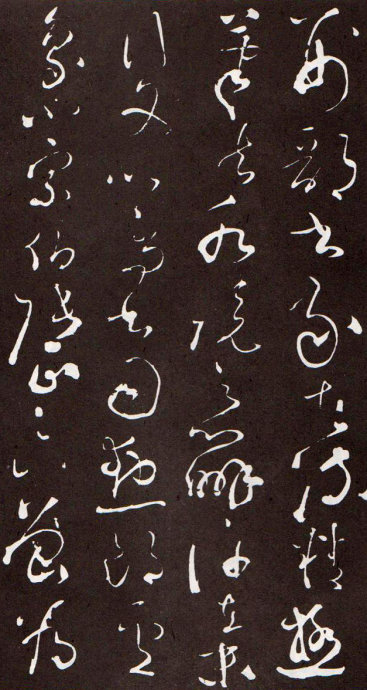 顏刑部書家者流精極
筆法水鏡之辨許在末
行又以尚書司勳郎盧
象小宗伯張正言曾為